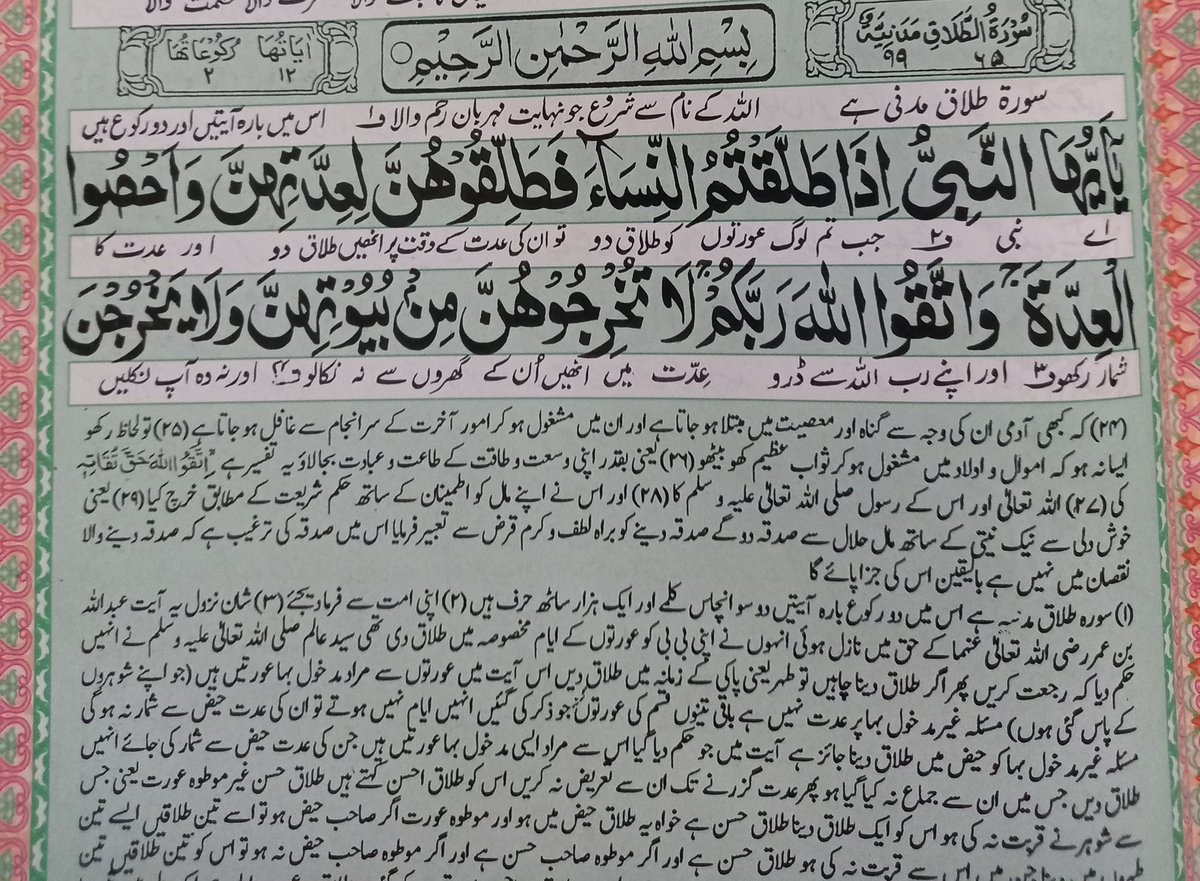 سُوْرَةُ الطَّلَاقِ مَدَنِيَّةٌ
٦٥ ٩٩
بِسْمِ اللهِ الرَّحْمٰنِ الرَّحِيْمِ
اٰيَاتُهَا ١٢
رُكُوْعَاتُهَا ٢
سورۃ طلاق مدنی ہے اللہ کے نام سے شروع جو نہایت مہربان رحم والا ف۱ اس میں بارہ آیتیں اور دو رکوع ہیں
يٰۤاَيُّهَا النَّبِيُّ اِذَا طَلَّقْتُمُ النِّسَآءَ فَطَلِّقُوْهُنَّ لِعِدَّتِهِنَّ وَاَحْصُوا
اے نبی ف۲ جب تم لوگ عورتوں کو طلاق دو تو ان کی عدت کے وقت پر انھیں طلاق دو اور عدت کا
الْعِدَّةَ ۚ وَاتَّقُوا اللهَ رَبَّكُمْ ۚ لَا تُخْرِجُوْهُنَّ مِنْۢ بُيُوْتِهِنَّ وَلَا يَخْرُجْنَ
شمار رکھو ف۳ اور اپنے رب اللہ سے ڈرو عِدّت میں انھیں اُن کے گھروں سے نہ نکالو ف۴ اور نہ وہ آپ نکلیں
(۲۴) کہ کبھی آدمی ان کی وجہ سے گناہ اور معصیت میں مبتلا ہو جاتا ہے اور ان میں مشغول ہو کر امور آخرت کے سرانجام سے غافل ہو جاتا ہے (۲۵) تو لحاظ رکھو
ایسا نہ ہو کہ اموال و اولاد میں مشغول ہو کر ثواب عظیم کھو بیٹھو (۲۶) یعنی بقدر اپنی وسعت و طاقت کے طاعت و عبادت بجالاؤ یہ تفسیر ہے اِتَّقُوا اللهَ حَقَّ تُقَاتِهٖ
کی (۲۷) اللہ تعالیٰ اور اس کے رسول صلی اللہ تعالیٰ علیہ و سلم کا (۲۸) اور اس نے اپنے مال کو اطمینان کے ساتھ حکم شریعت کے مطابق خرچ کیا (۲۹) یعنی
خوش دلی سے نیک نیتی کے ساتھ مال حلال سے صدقہ دو گے صدقہ دینے کو براہ لطف و کرم قرض سے تعبیر فرمایا اس میں صدقہ کی ترغیب ہے کہ صدقہ دینے والا
نقصان میں نہیں ہے بالیقین اس کی جزا پائے گا
(۱) سورہ طلاق مدنیہ ہے اس میں دو رکوع بارہ آیتیں دو سو انچاس کلمے اور ایک ہزار ساٹھ حرف ہیں (۲) اپنی امت سے فرما دیجئے (۳) شان نزول یہ آیت عبداللہ
بن عمر رضی اللہ تعالیٰ عنہما کے حق میں نازل ہوئی انہوں نے اپنی بی بی کو عورتوں کے ایام مخصوصہ میں طلاق دی تھی سید عالم صلی اللہ تعالیٰ علیہ و سلم نے انہیں
حکم دیا کہ رجعت کریں پھر اگر طلاق دینا چاہیں تو طہر یعنی پاکی کے زمانہ میں طلاق دیں اس آیت میں عورتوں سے مراد مدخول بہا عورتیں ہیں (جو اپنے شوہروں
کے پاس گئی ہوں) مسئلہ غیر مدخول بہا پر عدت نہیں ہے باقی تینوں قسم کی عورتوں جو ذکر کی گئیں انہیں ایام نہیں ہوتے تو ان کی عدت حیض سے شمار نہ ہوگی
مسئلہ غیر مدخول بہا کو حیض میں طلاق دینا جائز ہے آیت میں جو حکم دیا گیا اس سے مراد ایسی مدخول بہا عورتیں ہیں جن کی عدت حیض سے شمار کی جائے انہیں
طلاق دیں جس میں ان سے جماع نہ کیا گیا ہو پھر عدت گزرنے تک ان سے تعریض نہ کریں اس کو طلاق احسن کہتے ہیں طلاق حسن غیر موطوہ عورت یعنی جس
سے شوہر نے قربت نہ کی ہو اس کو ایک طلاق دینا طلاق حسن ہے خواہ یہ طلاق حیض میں ہو اور موطوہ عورت اگر صاحب حیض ہو تو اسے تین طلاقیں ایسے تین
اس سے قربت نہ کی ہو طلاق حسن ہے اور اگر موطوہ صاحب حیض نہ ہو تو اس کو تین طلاقیں تین